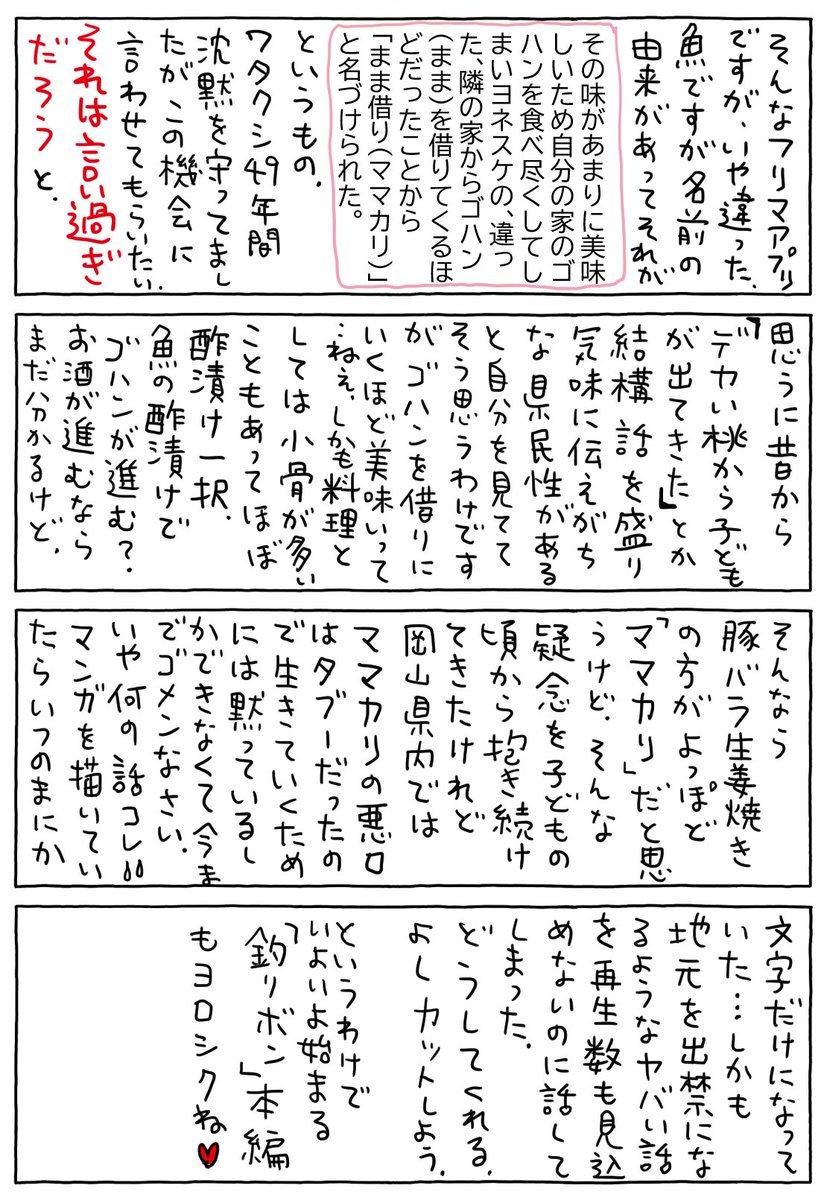 そんなフリマアプリ
ですが、いや違った、
魚ですが名前の
由来があってそれが
その味があまりに美味
しいため自分の家のゴ
ハンを食べ尽くしてし
まいヨネスケの、違っ
た、隣の家からゴハン
(まま)を借りてくるほ
どだったことから
「まま借り(ママカリ)」
と名づけられた。
というもの、
ワタクシ49年間
沈黙を守ってまし
たがこの機会に
言わせてもらいたい、
それは言い過ぎ
だろうと、
思うに昔から
「デカい桃から子ども
が出てきた」とか
結構話を盛り
気味に伝えがち
な県民性がある
と自分を見てて
そう思うわけです
がゴハンを借りに
いくほど美味いって
…ねえ、しかも料理と
しては小骨が多い
こともあってほぼ
酢漬け一択、
魚の酢漬けで
ゴハンが進む?
お酒が進むなら
まだ分かるけど、
そんなら
豚バラ生姜焼き
の方がよっぽど
「ママカリ」だと思
うけど、そんな
疑念を子どもの
頃から抱き続け
てきたけれど
岡山県内では
ママカリの悪口
はタブーだったの
で生きていくため
には黙っているし
かできなくて今ま
でゴメンなさい、
いや何の話コレ!!
マンガを描いてい
たらいつのまにか
文字だけになって
いた…しかも
地元を出禁にな
るようなヤバい話
を再生数も見込
めないのに話して
しまった、
どうしてくれる、
よしカットしよう、
というわけで
いよいよ始まる
「釣りボン」本編
もヨロシクね♥